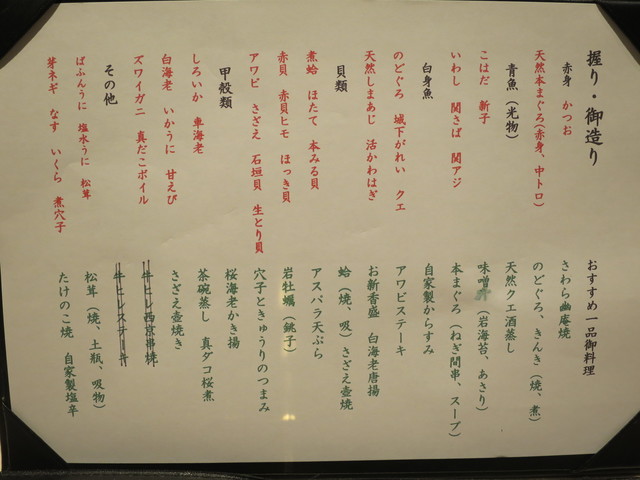 握り・御造り
赤身 かつお
天然本まぐろ(赤身、中トロ)
青魚(光物)
こはだ 新子
いわし 関さば 関アジ
白身魚
のどぐろ 城下がれい クエ
天然しまあじ 活かわはぎ
貝類
煮蛤 ほたて 本みる貝
赤貝 赤貝ヒモ ほっき貝
アワビ さざえ 石垣貝 生とり貝
甲殻類
しろいか 車海老
白海老 いかうに 甘えび
ズワイガニ 真だこボイル
その他
ばふんうに 塩水うに 松茸
芽ネギ なす いくら 煮穴子
おすすめ一品御料理
さわら幽庵焼
のどぐろ、きんき(焼、煮)
天然クエ酒蒸し
味噌汁(岩海苔、あさり)
本まぐろ(ねぎ間串、スープ)
自家製からすみ
アワビステーキ
お新香盛 白海老唐揚
蛤(焼、吸)さざえ壺焼
アスパラ天ぷら
岩牡蠣(銚子)
穴子ときゅうりのつまみ
桜海老かき揚
茶碗蒸し 真ダコ桜煮
さざえ壺焼き
牛ヒレ西京串焼
牛ヒレステーキ
松茸(焼、土瓶、吸物)
たけのこ焼 自家製塩辛